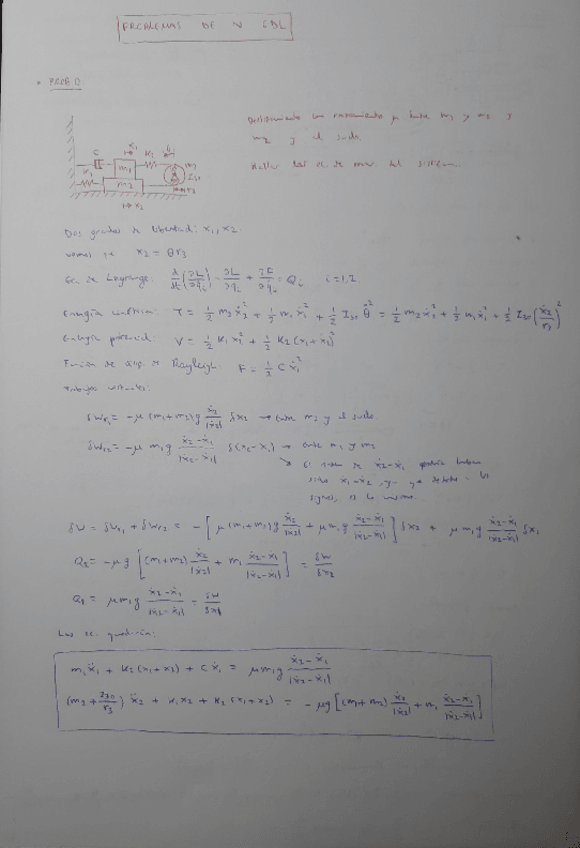 PROBLEMAS DE N GDL
• PROB 1)
Deslizamiento con rozamiento μ entre m₁ y m₂ y
m₂ y el suelo.
Hallar las ec. de mov. del sistema.
C x₁ K₂ m₃
K₁ m₁ I₃₀
m₂ r₃
x₂
Dos grados de libertad: x₁, x₂.
vemos que x₂ = θr₃
Ec. de Lagrange: d/dt(∂L/∂q̇ᵢ) - ∂L/∂qᵢ + ∂F/∂q̇ᵢ = Qᵢ i=1,2
Energía cinética: T = 1/2 m₂ẋ₂² + 1/2 m₁ẋ₁² + 1/2 I₃₀ θ̇² = 1/2 m₂ẋ₂² + 1/2 m₁ẋ₁² + 1/2 I₃₀(ẋ₂/r₃)²
Energía potencial: V = 1/2 K₁x₁² + 1/2 K₂(x₁+x₂)²
Función de disip. de Rayleigh: F = 1/2 C ẋ₁²
Trabajos virtuales:
δW₍r₁₎ = -μ(m₁+m₂)g ẋ₂/|ẋ₂| δx₂ → entre m₂ y el suelo.
δW₍r₂₎ = -μ m₁g (ẋ₂-ẋ₁)/|ẋ₂-ẋ₁| δ(x₂-x₁) → entre m₁ y m₂
ẋ₂-ẋ₁
es lo mismo.
δW = δW₍r₁₎ + δW₍r₂₎ = -[μ(m₁+m₂)g ẋ₂/|ẋ₂| + μm₁g (ẋ₂-ẋ₁)/|ẋ₂-ẋ₁|] δx₂ + μm₁g (ẋ₂-ẋ₁)/|ẋ₂-ẋ₁| δx₁
Q₂ = -μg [(m₁+m₂) ẋ₂/|ẋ₂| + m₁ (ẋ₂-ẋ₁)/|ẋ₂-ẋ₁|] = δW/δx₂
Q₁ = μm₁g (ẋ₂-ẋ₁)/|ẋ₂-ẋ₁| = δW/δx₁
Las ec. quedarían:
m₁ẍ₁ + K₂(x₁+x₂) + Cẋ₁ = μm₁g (ẋ₂-ẋ₁)/|ẋ₂-ẋ₁|
(m₂ + I₃₀/r₃) ẍ₂ + K₁x₂ + K₂(x₁+x₂) = -μg[(m₁+m₂) ẋ₂/|ẋ₂| + m₁ (ẋ₂-ẋ₁)/|ẋ₂-ẋ₁|]